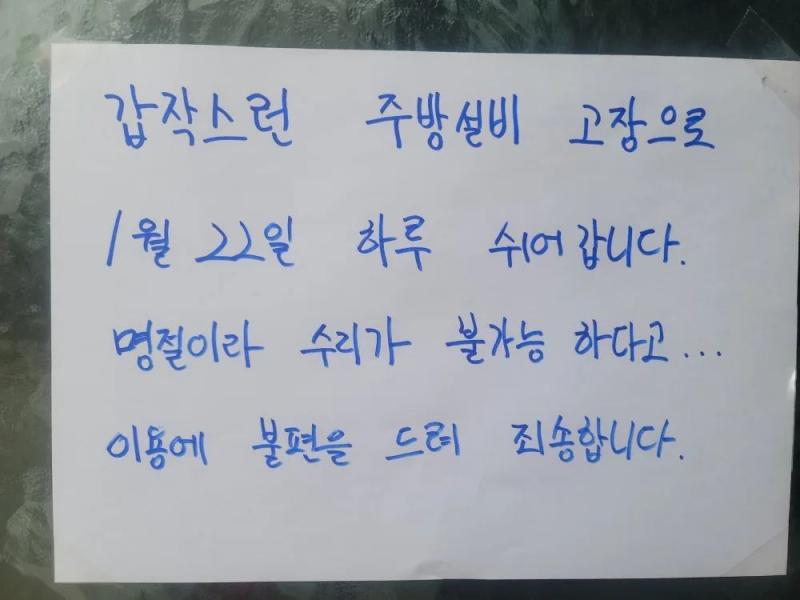 갑작스런 주방설비 고장으로
1월 22일 하루 쉬어갑니다.
명절이라 수리가 불가능 하다고...
이용에 불편을 드려 죄송합니다.